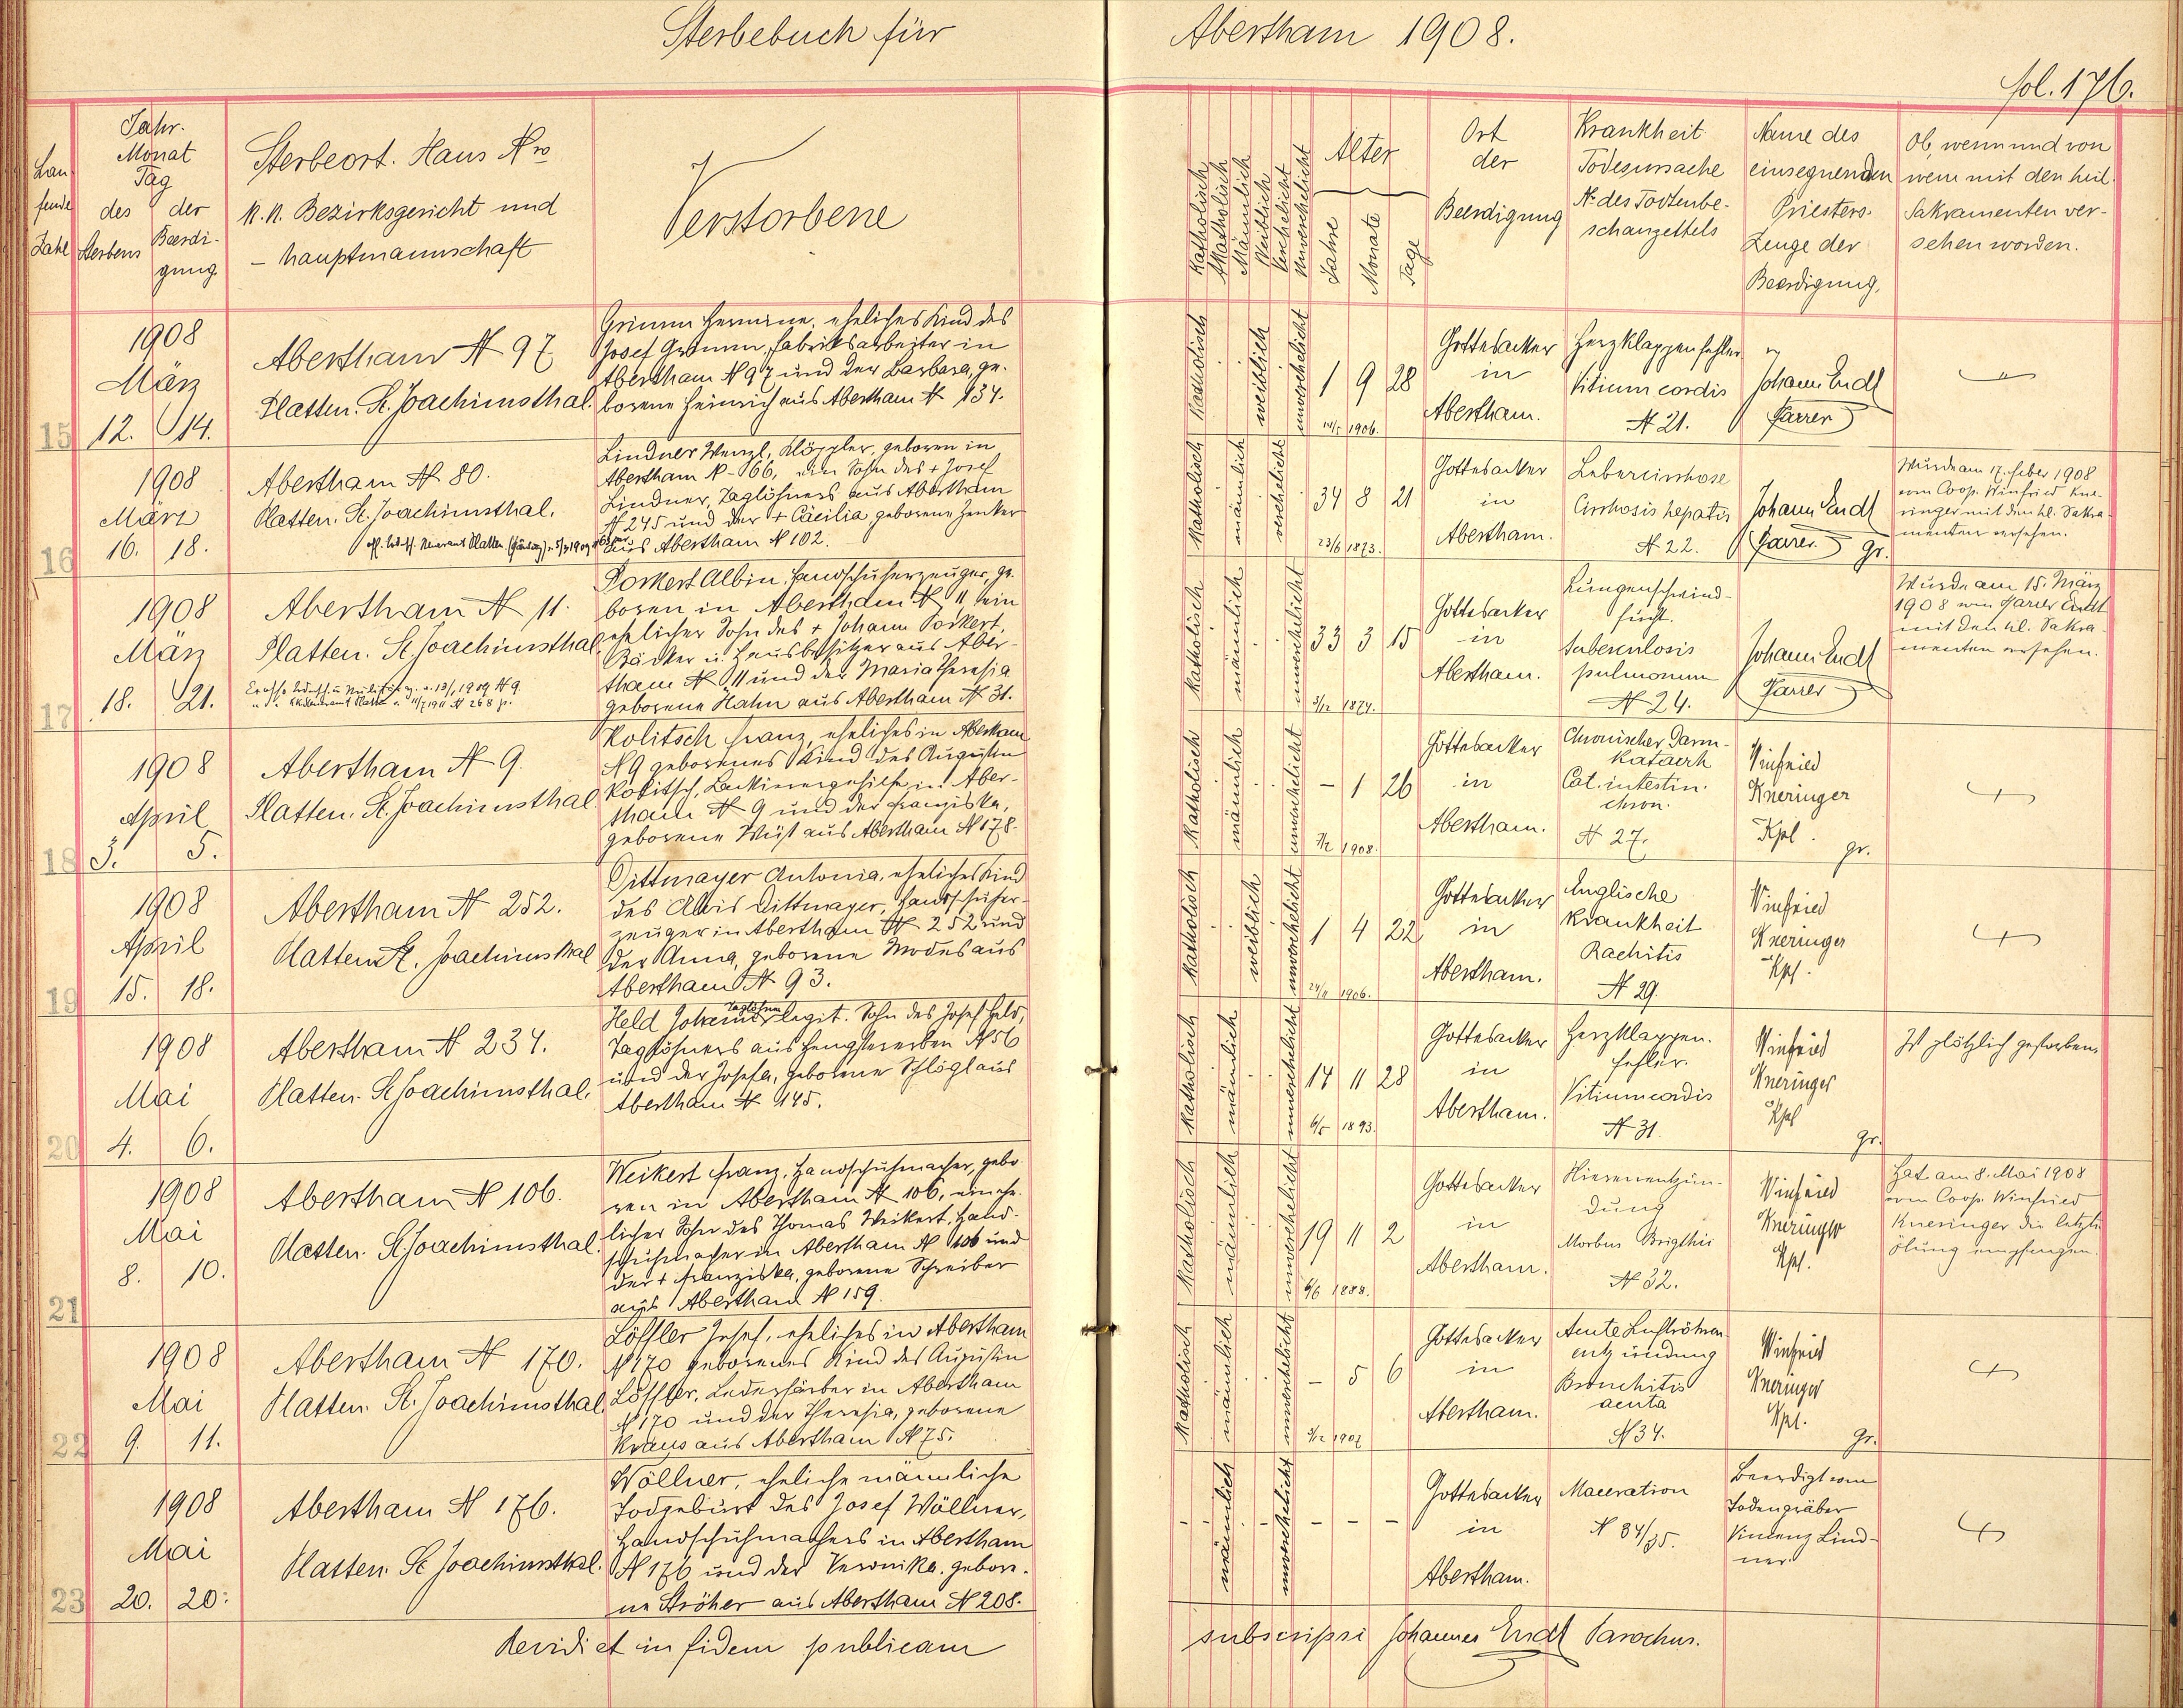 Sterbebuch für Abertham 1908.
fol. 176.
Lau-
fende
Zahl
Jahr.
Monat
Tag
des der
Sterbens Beerdi-
gung.
Sterbeort. Haus Nro
k.k. Bezirksgericht und
– hauptmannschaft
Verstorbene
Katholisch
Akatholisch
Männlich
Weiblich
Verehelicht
Unverehelicht
Alter
Jahre
Monate
Tage
Ort
der
Beerdigung
Krankheit
Todesursache
N. des Todtenbe-
schauzettels
Name des
einsegnenden
Priesters.
Zeuge der
Beerdigung.
Ob, wenn und von
wem mit den heil.
Sakramenten ver-
sehen worden.
15
1908
März
12. 14.
Abertham N 97
Platten. St. Joachimsthal.
Grimm Hermine, eheliches Kind des
Josef Grimm, Fabriksarbeiter in
Abertham N 97 und der Barbara, ge-
borene Heinrich aus Abertham N 134.
Katholisch
weiblich
unverehelicht
1 9 28
14/5 1906.
Gottesacker
in
Abertham.
Herzklappenfehler
Vitium cordis
N 21.
Johann Endl
Pfarrer
16
1908
März
16. 18.
Abertham N 80.
Platten. St. Joachimsthal.
Lindner Wenzl, Klöppler, geboren in
Abertham N 166, ein Sohn des + Josef
Lindner, Taglöhners aus Abertham
N 245 und der + Cäcilia geborene Henker
aus Abertham N 102.
Katholisch
männlich
verehelicht
34 8 21
23/6 1873.
Gottesacker
in
Abertham.
Lebercirrhose
Cirrhosis hepatis
N 22.
Johann Endl
Pfarrer.
gr.
Wurde am 17. Feber 1908
vom Coop. Winfried Kne-
ringer mit den hl. Sakra-
menten versehen.
17
1908
März
18. 21.
Abertham N 11.
Platten. St. Joachimsthal.
Porkert Albin, Handschuherzeuger, ge-
boren in Abertham N 11 ein
ehelicher Sohn des + Johann Porkert,
Bäcker u. Hausbesitzer aus Aber-
tham N 11 und der Maria Theresia
geborene Hahn aus Abertham N 31.
Katholisch
männlich
unverehelicht
33 3 15
3/12 1874.
Gottesacker
in
Abertham.
Lungenschwind-
sucht.
Tuberculosis
pulmonum
N 24.
Johann Endl
Pfarrer
Wurde am 15. März
1908 vom Pfarrer Endl
mit den hl. Sakra-
menten versehen.
18
1908
April
3. 5.
Abertham N 9.
Platten. St. Joachimsthal.
Kolitsch Franz, eheliches in Abertham
N 9 geborenes Kind des Augustin
Kolitsch, Lackirergehilfe in Aber-
tham N 9 und der Franziska,
geborene Wüst aus Abertham N 178.
Katholisch
männlich
unverehelicht
– 1 26
7/2 1908.
Gottesacker
in
Abertham.
Chronischer Darm-
katarrh
Cat. intestin.
chron.
N 27.
Winfried
Kneringer
Kpl.
gr.
19
1908
April
15. 18.
Abertham N 252.
Platten St. Joachimsthal
Dittmayer Antonia, eheliches Kind
des Alois Dittmayer, Handschuher-
zeuger in Abertham N 252 und
der Anna, geborene Modes aus
Abertham N 93.
Katholisch
weiblich
unverehelicht
1 4 22
24/11 1906.
Gottesacker
in
Abertham.
Englische
Krankheit
Rachitis
N 29.
Winfried
Kneringer
Kpl.
20
1908
Mai
4. 6.
Abertham N 234.
Platten. St. Joachimsthal.
Taglöhner
Held Johann, legit. Sohn des Josef Held,
Taglöhners aus Hengstererben N 56
und der Josefa, geborene Schlögl aus
Abertham N 145.
Katholisch
männlich
unverehelicht
14 11 28
6/5 1893.
Gottesacker
in
Abertham.
Herzklappen-
fehler.
Vitium cordis
N 31.
Winfried
Kneringer
Kpl
gr.
Ist plötzlich gestorben.
21
1908
Mai
8. 10.
Abertham N 106.
Platten. St. Joachimsthal.
Weikert Franz, Handschuhmacher, gebo-
ren in Abertham N 106, ein ehe-
licher Sohn des Thomas Weikert, Hand-
schuhmacher in Abertham N 106 und
der + Franziska, geborene Schreiber
aus Abertham N 159.
Katholisch
männlich
unverehelicht
19 11 2
6/6 1888.
Gottesacker
in
Abertham.
Nierenentzün-
dung
Morbus Brigthii
N 32.
Winfried
Kneringer
Kpl.
Hat am 8. Mai 1908
vom Coop. Winfried
Kneringer die letzte
Ölung empfangen.
22
1908
Mai
9. 11.
Abertham N 170.
Platten. St. Joachimsthal.
Löffler Josef, eheliches in Abertham
N 170 geborenes Kind des Augustin
Löffler, Lederfärber in Abertham
N 170 und der Theresia, geborene
Kraus aus Abertham N 75.
Katholisch
männlich
unverehelicht
– 5 6
3/12 1907
Gottesacker
in
Abertham.
Acute Luftröhren-
entzündung
Bronchitis
acuta
N 34.
Winfried
Kneringer
Kpl.
gr.
23
1908
Mai
20. 20.
Abertham N 176.
Platten. St. Joachimsthal.
Wöllner, eheliche männliche
Todgeburt des Josef Wöllner,
Handschuhmachers in Abertham
N 176 und der Veronika, gebore-
ne Ströher aus Abertham N 208.
männlich
unverehelicht
– – –
Gottesacker
in
Abertham.
Maceration
N 34/35.
Beerdigt vom
Todengräber
Vincenz Lind-
ner.
Revidi et in fidem publicam subscripsi Johannes Endl Parochus.